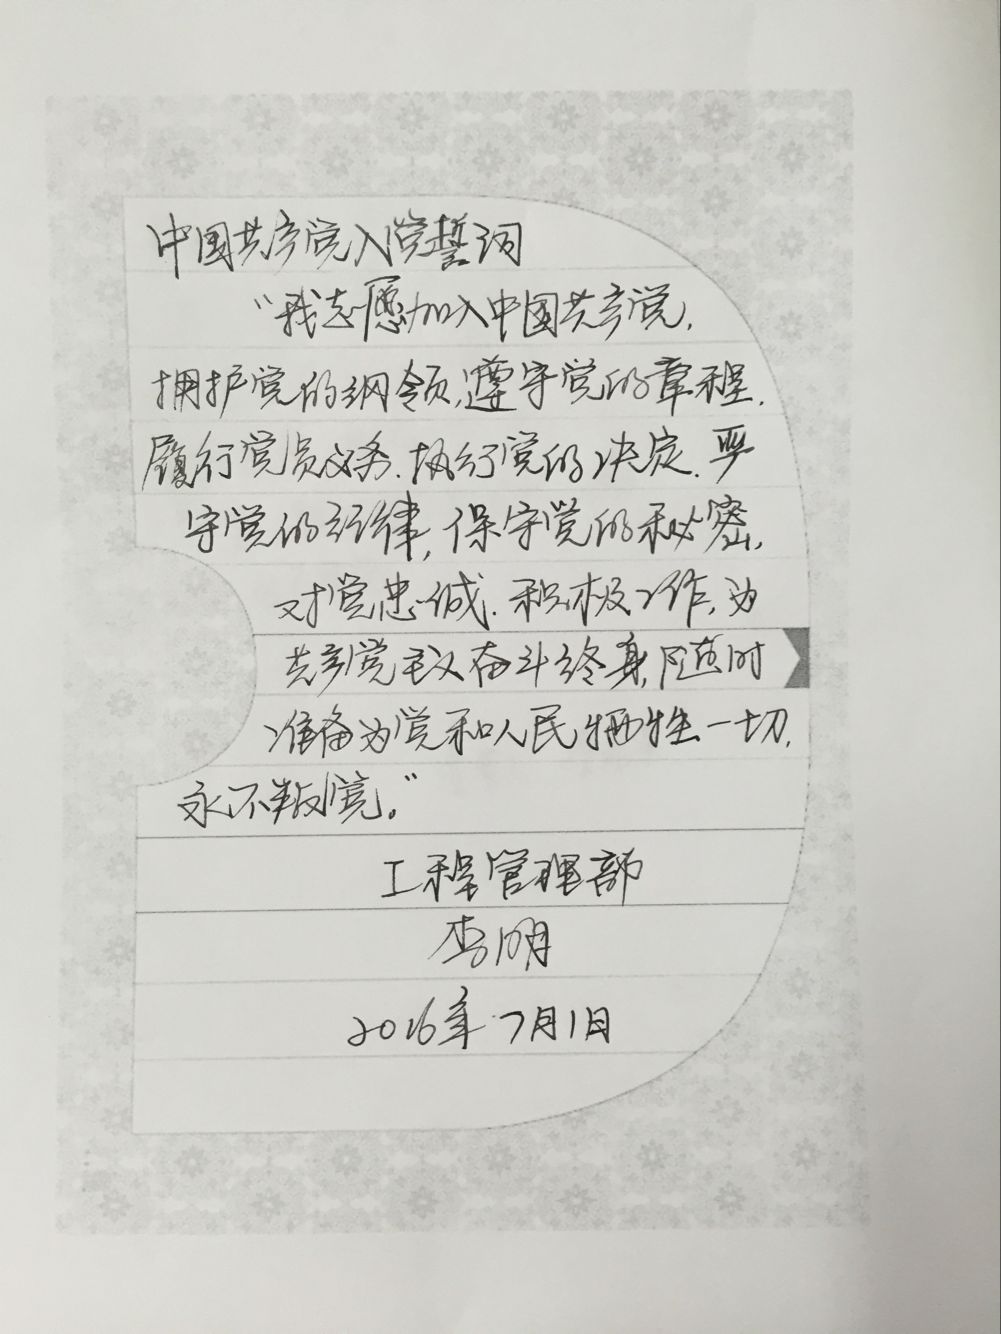 中国共产党入党誓词
“我志愿加入中国共产党，
拥护党的纲领，遵守党的章程，
履行党员义务，执行党的决定，严
守党的纪律，保守党的秘密，
对党忠诚，积极工作，为
共产党主义奋斗终身，随时
准备为党和人民牺牲一切，
永不判叛党。”
工程管理部
李明
2016年7月1日